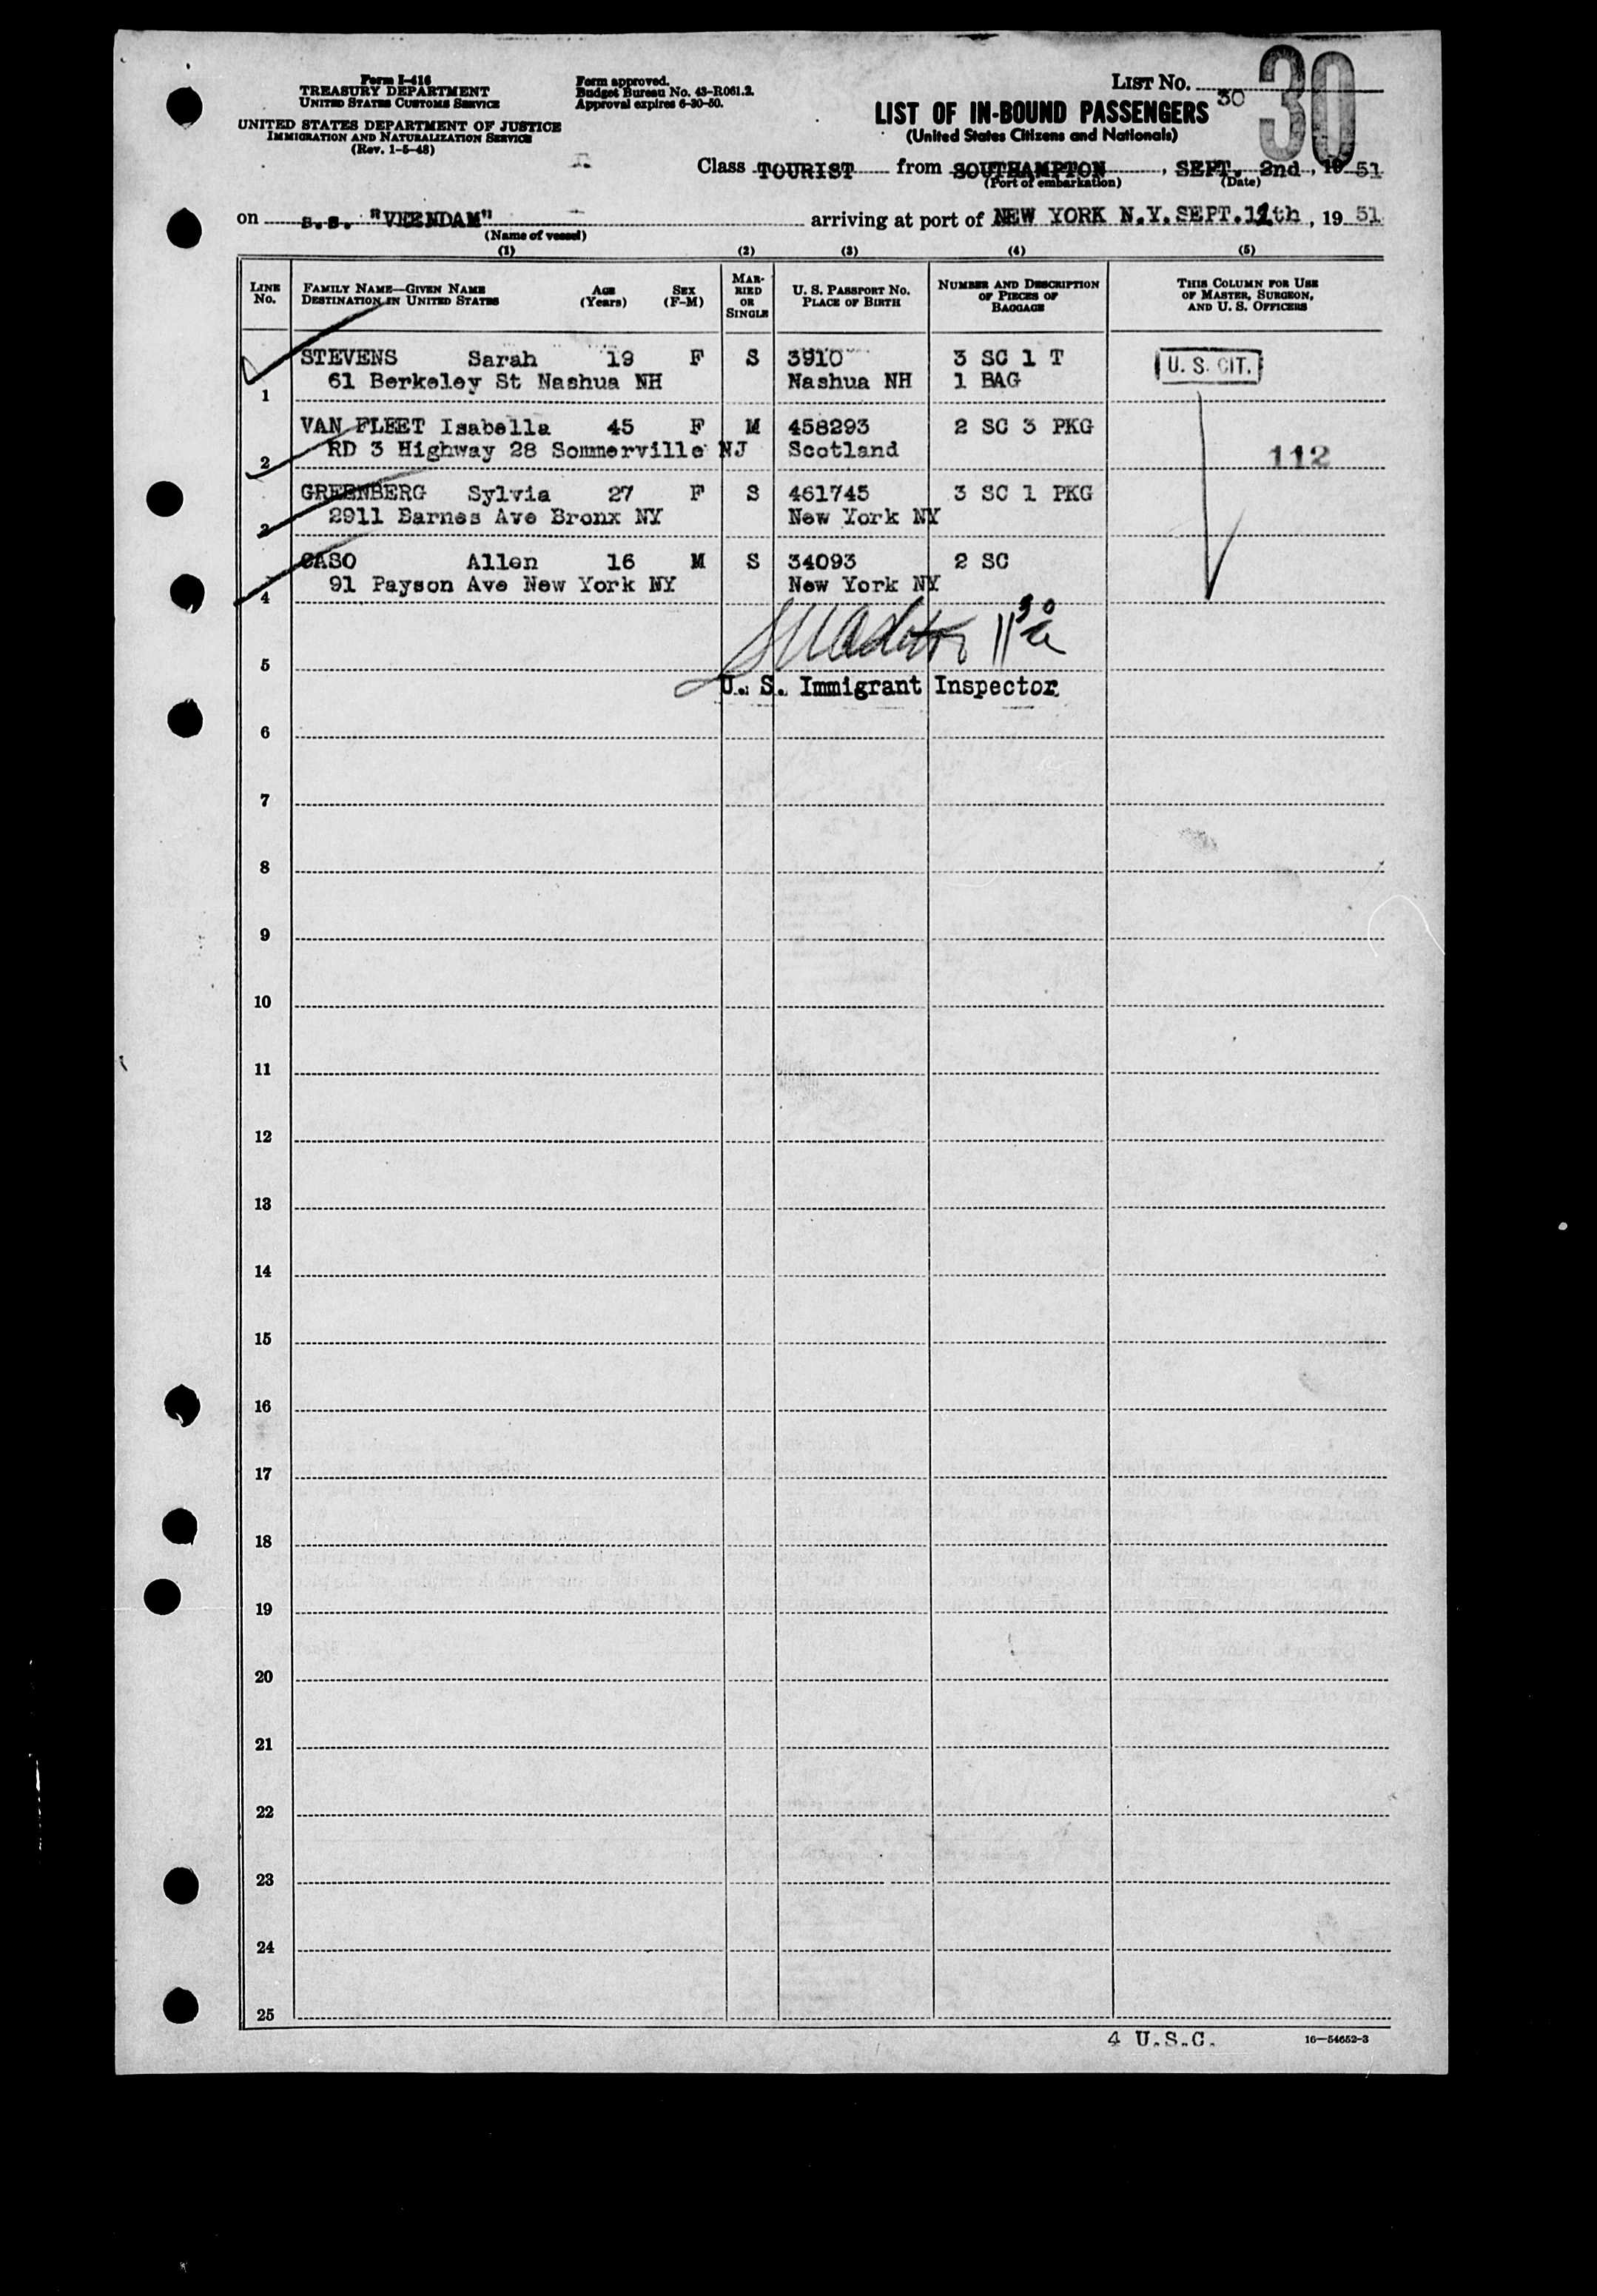 Form I-416
TREASURY DEPARTMENT
UNITED STATES CUSTOMS SERVICE
UNITED STATES DEPARTMENT OF JUSTICE
IMMIGRATION AND NATURALIZATION SERVICE
(Rev. 1-5-48)
Form approved.
Budget Bureau No. 43-R061.2.
Approval expires 6-30-50.
LIST NO. 30
30
LIST OF IN-BOUND PASSENGERS
(United States Citizens and Nationals)
Class TOURIST from SOUTHAMPTON, SEPT. 2nd, 19 51
(Port of embarkation) (Date)
on s.s. "VEENDAM" arriving at port of NEW YORK N.Y. SEPT. 11th, 19 51
(Name of vessel)
(1) (2) (3) (4) (5)
LINE NO.
FAMILY NAME—GIVEN NAME
DESTINATION IN UNITED STATES
AGE (Years)
SEX (F-M)
MARRIED OR SINGLE
U. S. PASSPORT NO.
PLACE OF BIRTH
NUMBER AND DESCRIPTION OF PIECES OF BAGGAGE
THIS COLUMN FOR USE OF MASTER, SURGEON, AND U. S. OFFICERS
STEVENS Sarah 19 F S 3910 3 SC 1 T U. S. CIT.
1 61 Berkeley St Nashua NH Nashua NH 1 BAG
VAN FLEET Isabella 45 F M 458293 2 SC 3 PKG
2 RD 3 Highway 28 Sommerville NJ Scotland 112
GREENBERG Sylvia 27 F S 461745 3 SC 1 PKG
3 2911 Barnes Ave Bronx NY New York NY
CASO Allen 16 M S 34093 2 SC
4 91 Payson Ave New York NY New York NY
5
U. S. Immigrant Inspector
6
7
8
9
10
11
12
13
14
15
16
17
18
19
20
21
22
23
24
25
4 U.S.C.
16—54652-3